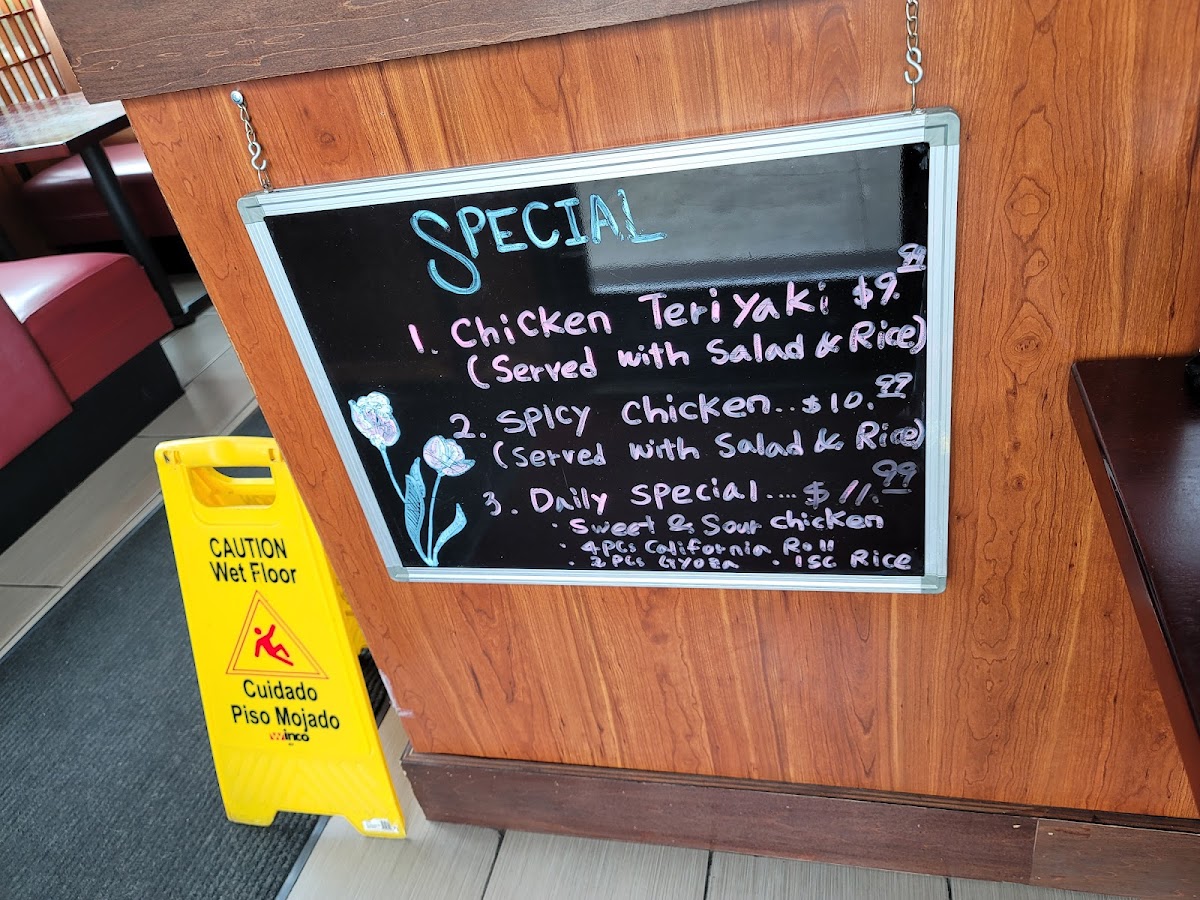 SPECIAL
1. Chicken Teriyaki $9.99
(Served with Salad & Rice)
2. Spicy Chicken..$10.99
(Served with Salad & Rice)
3. Daily Special....$11.99
· Sweet & Sour Chicken
· 4PCs California Roll
· 2PCs Gyoza · 1SC Rice
CAUTION
Wet Floor
Cuidado
Piso Mojado
winco